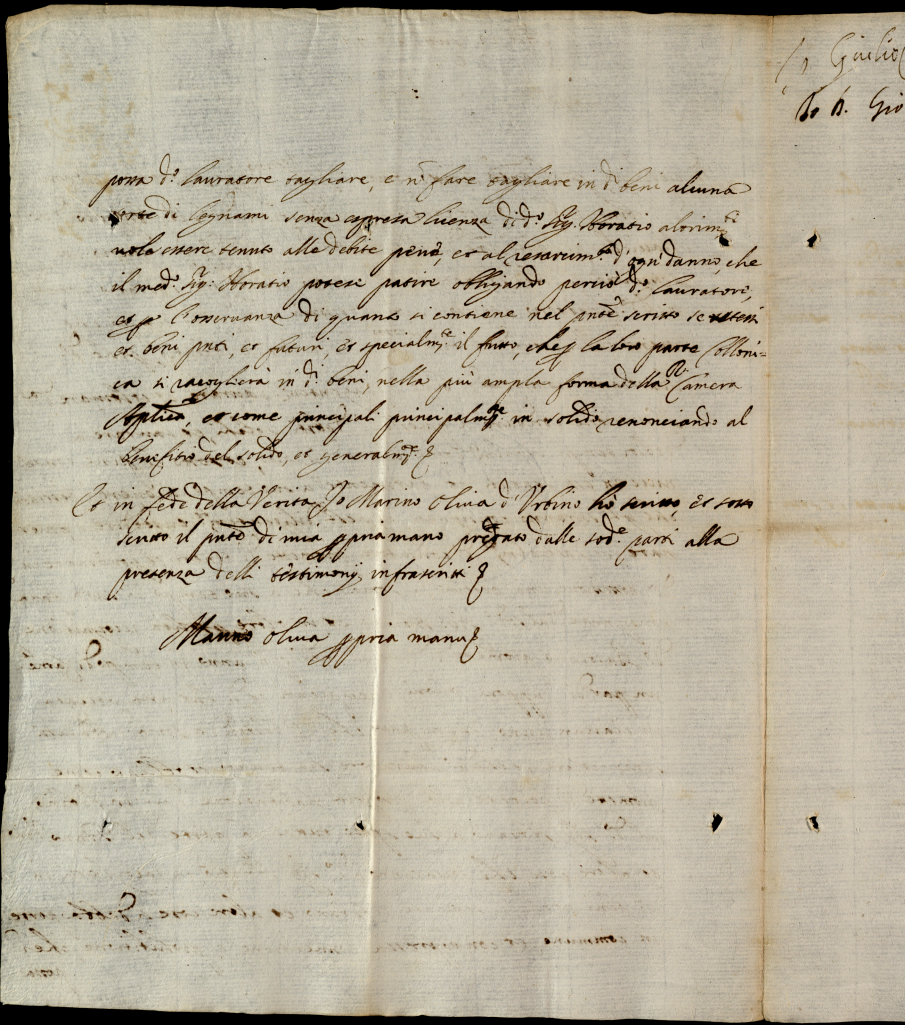 possa d.º lauratore tagliare, e n̄ fare tagliare in d.i beni alcuna
sorte di legnami senza espressa licenza di d.º Sig. Horatio altrim.ti
uole essere tenuto alle debite pene, et al resarcim.to d'ogni danno, che
il med.º Sig.r Horatio potesse patire obligando perciò d.º lauratore,
et p l'osseruanza di quanto si contiene nel pnte scritto se stessi
et beni pnti, et futuri, et specialm.te il frutto, che p la loro parte Colloni=
ca si racoglierà in d.i beni, nella più ampla forma della R. Camera
Aplica, et come principali principalm.te in solido renonciando al
benefitio del solido, et generalm.te
Et in fede della Verita Io Marino Oliua d'Urbino hò scritto, et sotto
scritto il pnte di mia ppria mano pregato dalle sod.e parti alla
presenza delli testimonij infrascritti
Marino Oliua ppria manu
Giulio
Io B. Gio